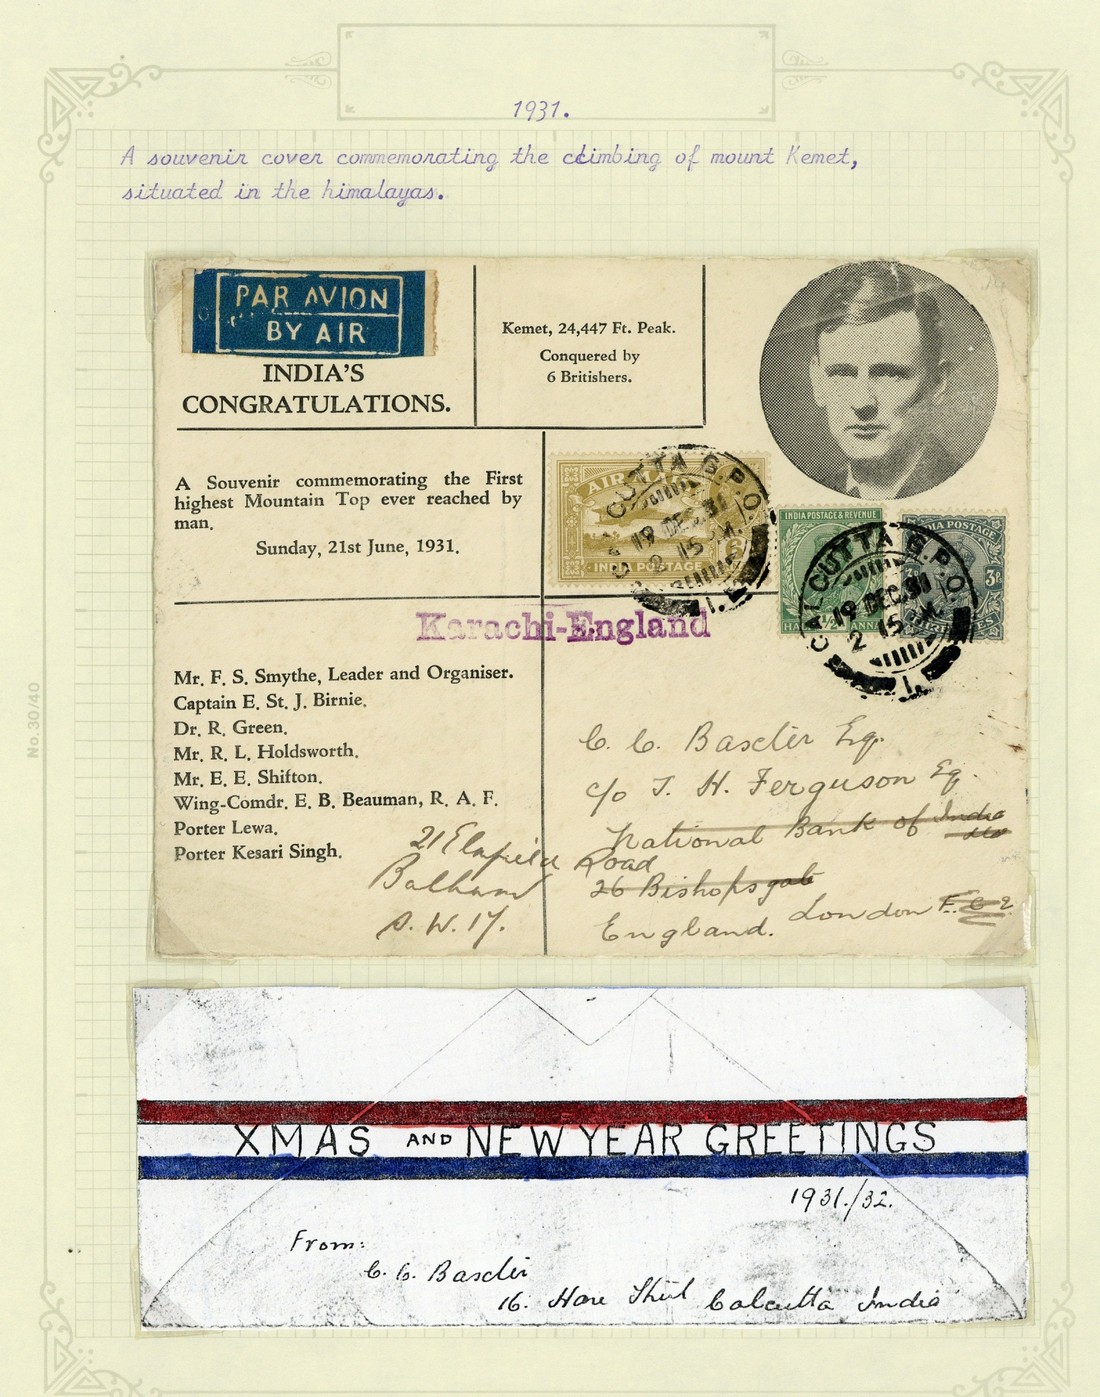 1931.
A souvenir cover commemorating the climbing of mount Kemet,
situated in the himalayas.
PAR AVION
BY AIR
INDIA'S
CONGRATULATIONS.
Kemet, 24,447 Ft. Peak.
Conquered by
6 Britishers.
A Souvenir commemorating the First
highest Mountain Top ever reached by
man.
Sunday, 21st June, 1931.
AIR
INDIA POSTAGE
CALCUTTA G.P.O.
19 DEC.31
2 15 M.
INDIA POSTAGE & REVENUE
HALF ANNA
INDIA POSTAGE
3P
CALCUTTA G.P.O.
19 DEC.31
2 15 M.
1.
Karachi-England
Mr. F. S. Smythe, Leader and Organiser.
Captain E. St. J. Birnie.
Dr. R. Green.
Mr. R. L. Holdsworth.
Mr. E. E. Shifton.
Wing-Comdr. E. B. Beauman, R. A. F.
Porter Lewa.
Porter Kesari Singh.
C. C. Baxter Esq.
c/o T. H. Ferguson Esq.
National Bank of India
26 Bishopsgate
London E.C 2
England.
21 Road
Balham
S. W. 17.
No.30/40
XMAS AND NEW YEAR GREETINGS
1931./32.
From:
C. C. Baxter
16. Hare Street Calcutta India